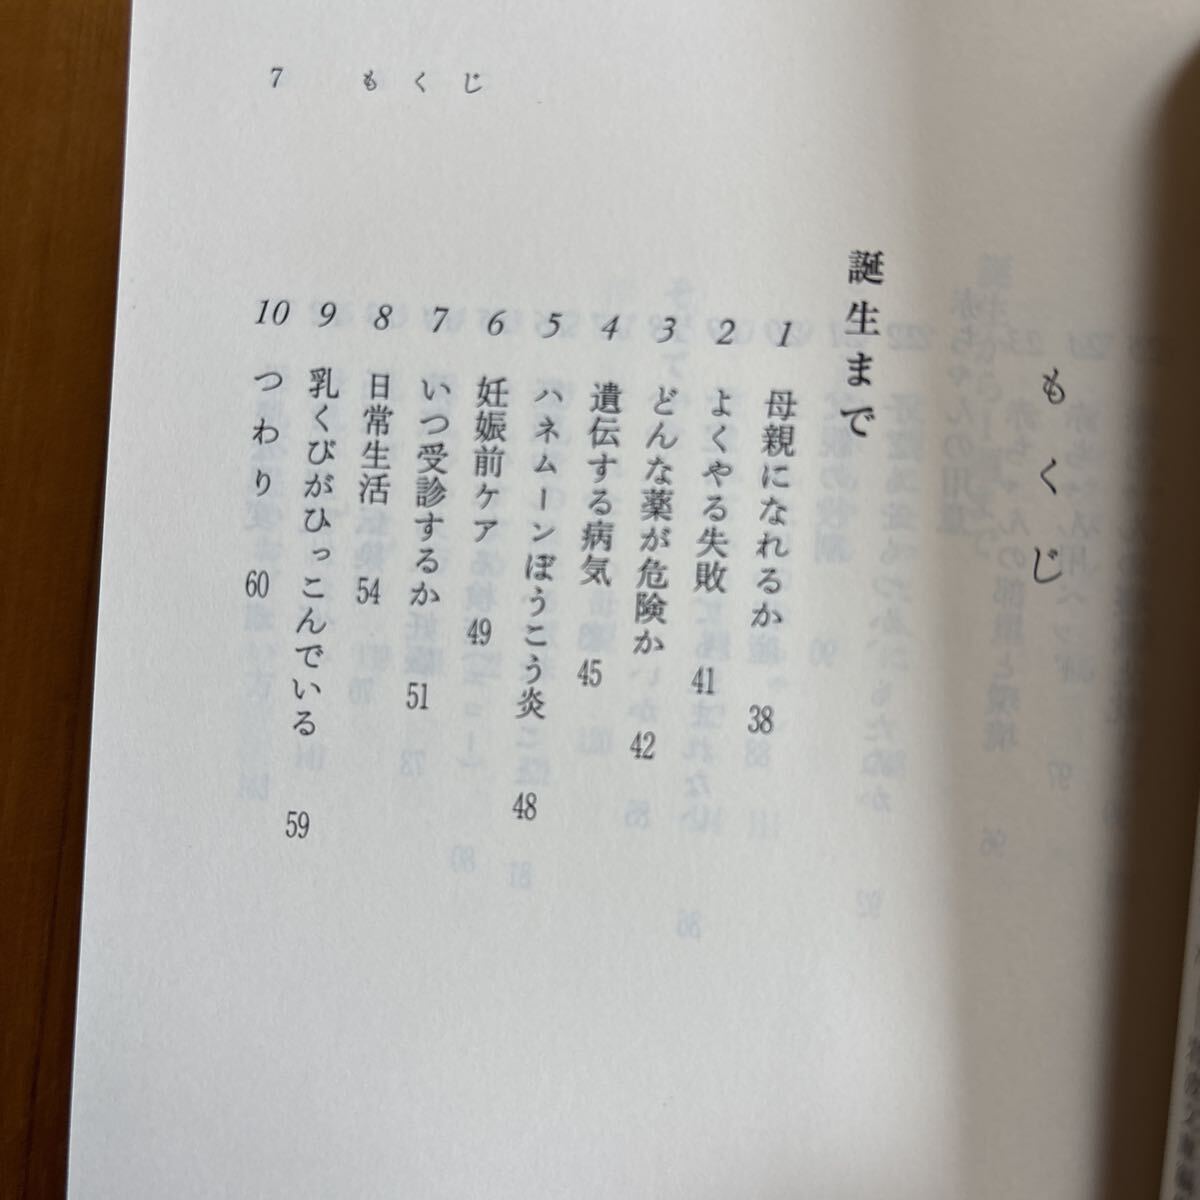 7 もくじ
もくじ
誕生まで
1 母親になれるか 38
2 よくやる失敗 41
3 どんな薬が危険か 42
4 遺伝する病気 45
5 ハネムーンぼうこう炎 48
6 妊娠前ケア 49
7 いつ受診するか 51
8 日常生活 54
9 乳くびがひっこんでいる 59
10 つわり 60